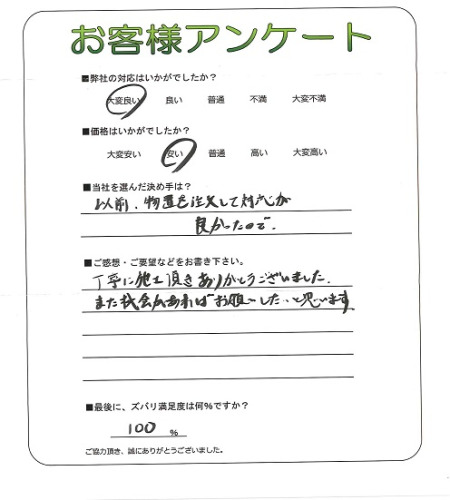 お客様アンケート
■弊社の対応はいかがでしたか？
大変良い 良い 普通 不満 大変不満
■価格はいかがでしたか？
大変安い 安い 普通 高い 大変高い
■当社を選んだ決め手は？
以前、物置を注文して対応が
良かったので.
■ご感想・ご要望などをお書き下さい。
丁寧に施工頂きありがとうございました.
また機会があればお願いしたいと思います.
■最後に、ズバリ満足度は何％ですか？
100 ％
ご協力頂き、誠にありがとうございました。